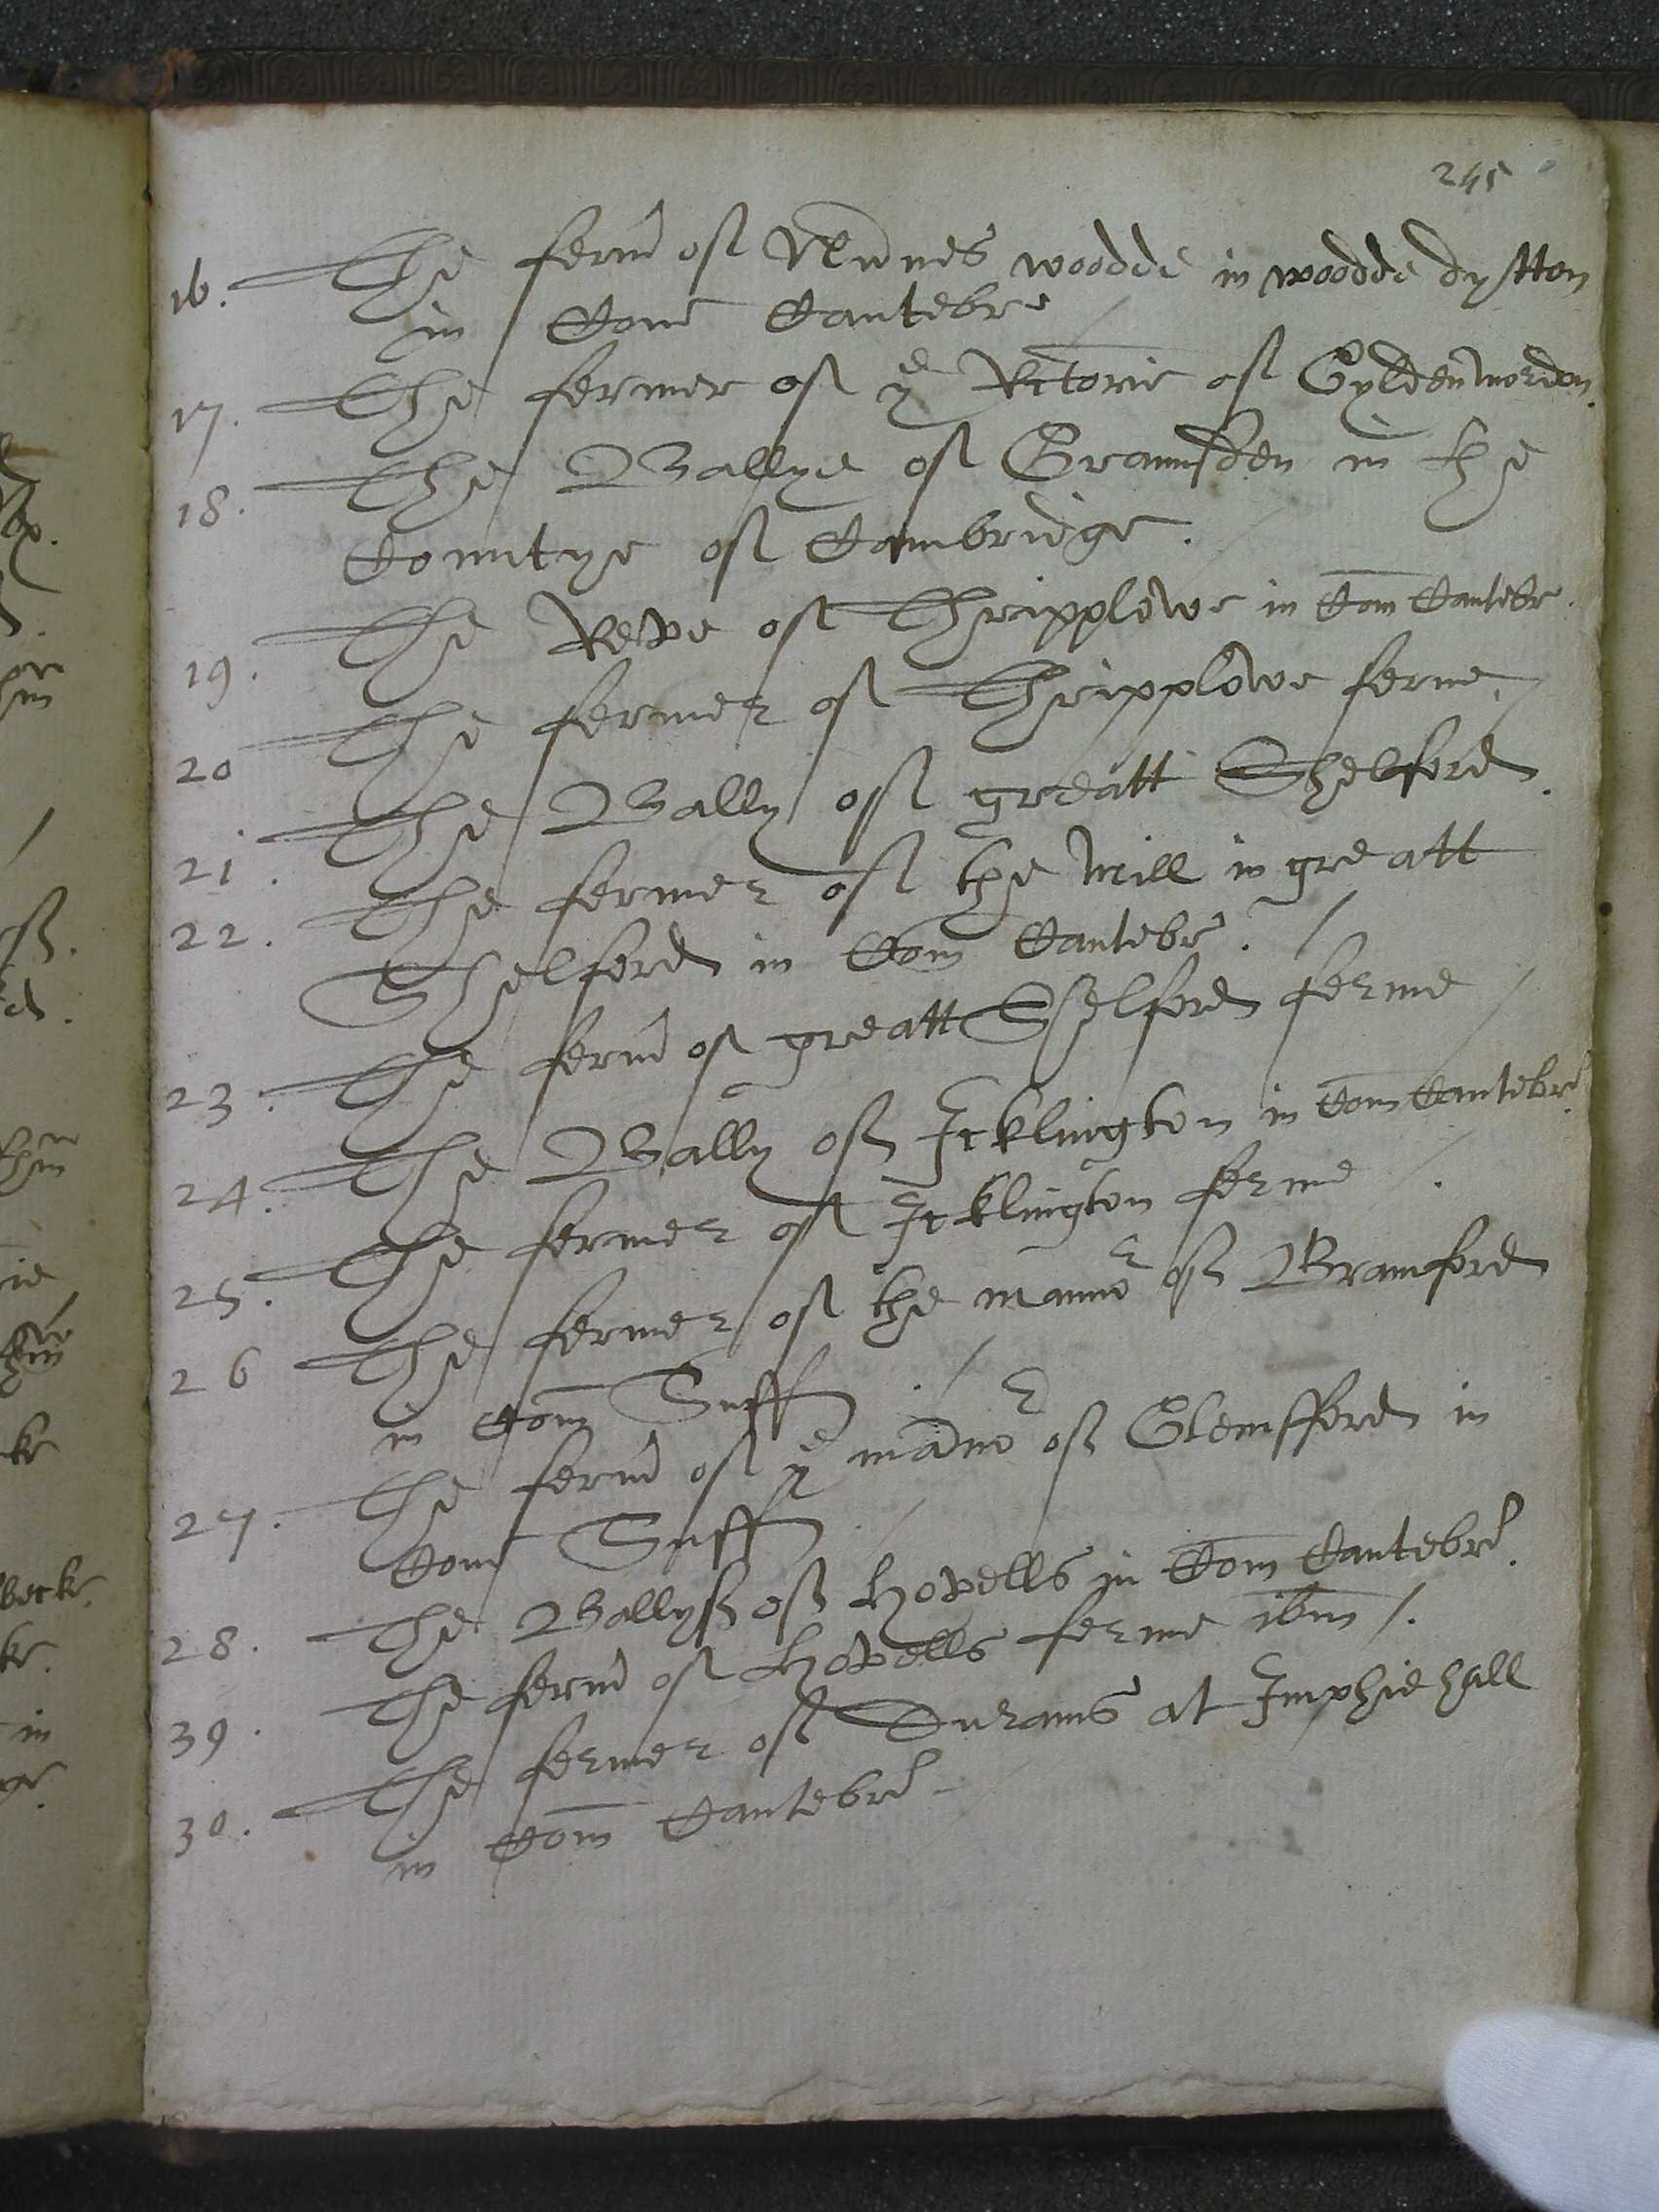 245
16. The ferm of Nunnes woodde in woodde dytton
in Com Cantebr
17. The fermer of ye Rectorie of Gyldenmordon.
18. The Ballye of Grannsden in the
Countye of Cambridge.
19. The Reve of Thripplowe in Com Cantebr.
20 The fermer of Thripplowe ferme
21. The Bally of greatt Shelford.
22. The fermer of the Mill in greatt
Shelford in Com Cantebr. /
23. The ferm of greatt Shelford ferme /
24. The Bally of Icklington in Com Cantebr.
25. The fermer of Icklington ferme
26 The fermer of the manno r of Bramford
in Com Suff /
27. The ferm of ye mano r of Glemsford in
Com Suff /
28. The Ballyf of Hovells in Com Cantebr.
39. The ferm of Hovells ferme ibm /.
30. The fermer of Durams at Imphie hall
in Com Cantebr
becke.
ke.
in